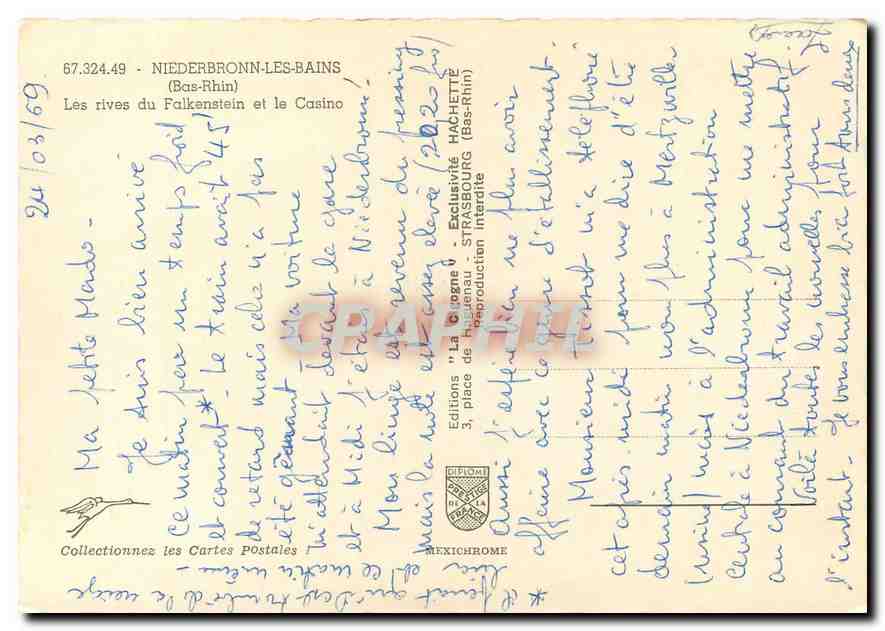 67.324.49 - NIEDERBRONN-LES-BAINS
(Bas-Rhin)
Les rives du Falkenstein et le Casino
24/03/69
Ma petite Mado -
Je suis bien arrivé
ce matin par un temps froid
et couvert * Le train avait 45'
de retard mais cela n'a pas
été gênant. Ma voiture
m'attendait devant la gare
et à Midi j'étais à Niederbronn.
Mon linge est revenu du pressing
mais la note est assez élevée
Aussi j'espère bien ne plus avoir
affaire avec ce genre d'établissement.
Monsieur m'a téléphoné
cet après-midi pour me dire d'être
demain matin non plus à Mertzwiller
(usine) mais à l'administration
Centrale à Niederbronn pour me mettre
au courant du travail administratif.
Voilà toutes les nouvelles pour
l'instant - Je vous embrasse bien fort tous deux
* il paraît qu'il est tombé de la neige
hier et ce matin même -
Editions "La Cigogne" - Exclusivité HACHETTE
3, place de Haguenau - STRASBOURG (Bas-Rhin)
Reproduction interdite
CPAPHIL
DIPLOME
PRESTIGE
DE LA
FRANCE
Collectionnez les Cartes Postales !
MEXICHROME